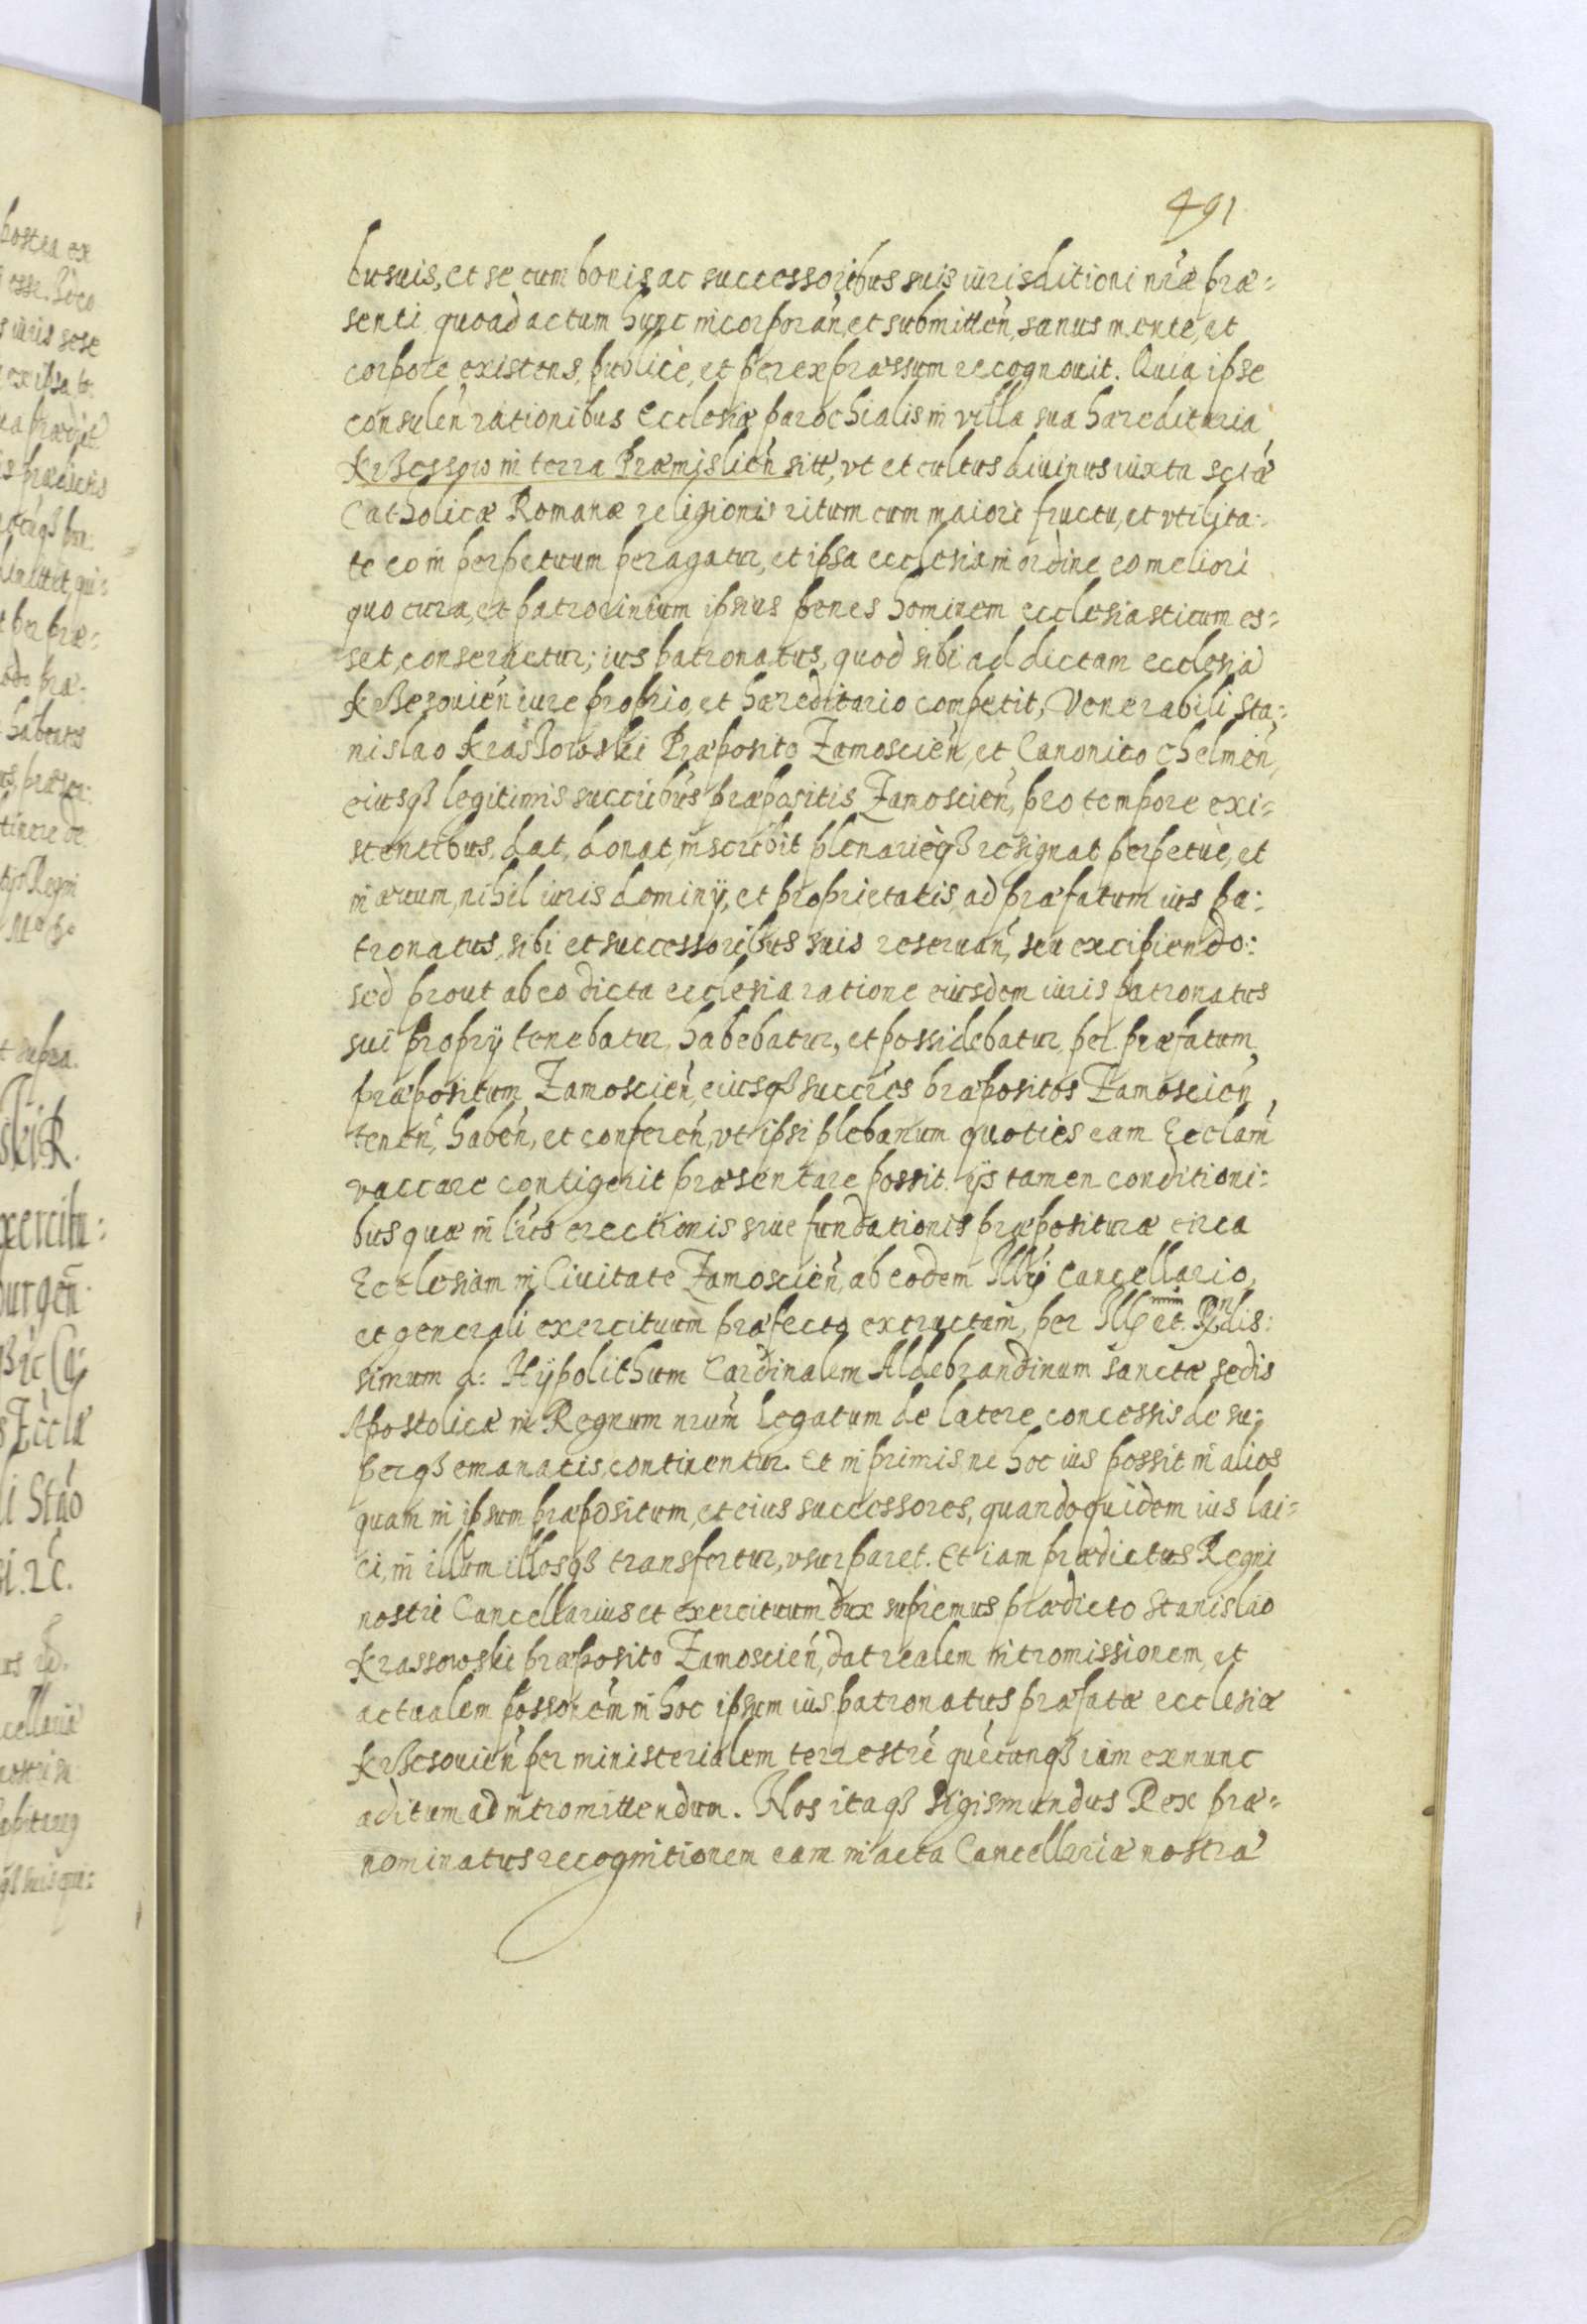 491
busuis, et se cum bonis ac successoribus suis iurisditioni nrae prae=
senti quoad actum hunc incorporan, et submitten, sanus mente, et
corpore existens, publicè, et per expraessum recognouit. Quia ipse
consulen rationibus Ecclesiae parochialis in villa sua haereditaria
Krzessow in terra Praemislien sitt, vt et cultus diuinus iuxta sctae
Catholicae Romanae religionis ritum cum maiori fructu, et vtilita=
te eo in perpetuum peragatur, et ipsa ecclesia in ordine eo meliori
quo cura, et patrocinium ipsius penes hominem ecclesiasticum es=
set, conseruetur; ius patronatus, quod sibi ad dictam ecclesiã
Krzesouien iure proprio, et haereditario competit, Venerabili Sta=
nislao Krassowski Praeposito Zamoscien, et Canonico Chelmen,
eiusq3 legitimis succribus praepositis Zamoscien, pro tempore exi=
stentibus, dat, donat, inscribit plenarièq3 resignat perpetuè, et
in aeuum, nihil iuris dominij, et proprietatis ad praefatum ius pa=
tronatus, sibi et successoribus suis reseruan, seu excipiendo:
sed prout ab eo dicta ecclesia ratione eiusdem iuris patronatus
sui proprij tenebatur, habebatur, et possidebatur, per praefatum
praepositum Zamoscien, eiusq3 succres praepositos Zamoscien,
tenen, haben, et conferen, vt ipsi plebanum quoties eam Ecclam
vaccare contigerit praesentare possit. ijs tamen conditioni=
bus quae in lris erectionis siue fundationis praepositurae circa
Ecclesiam in Ciuitate Zamoscien, ab eodem Illri Cancellario,
et generali exercituum praefecto extructam, per Illmum et Rndis=
simum d: Hÿpolithum Cardinalem Aldebrandinum sanctae sedis
Apostolicae in Regnum nrum legatum de latere concessis de su=
perq3 emanatis, continentur. Et in primis ne hoc ius possit in alios
quam in ipsum praepositum, et eius successores, quandoquidem ius lai=
ci, in illum illosq3 transfertur, vsurparet. Et iam praedictus Regni
nostri Cancellarius et exercituum dux supremus praedicto Stanislao
Krassowski praeposito Zamoscien, dat realem intromissionem, et
actualem possonem in hoc ipsum ius patronatus praefatae ecclesiae
Krzesouien per ministerialem terrestrẽ quẽcunq3 iam exnunc
aditum ad intromittendum. Nos itaq3 Sigismundus Rex prae=
nominatus recognitionem eam in acta Cancellariae nostrae